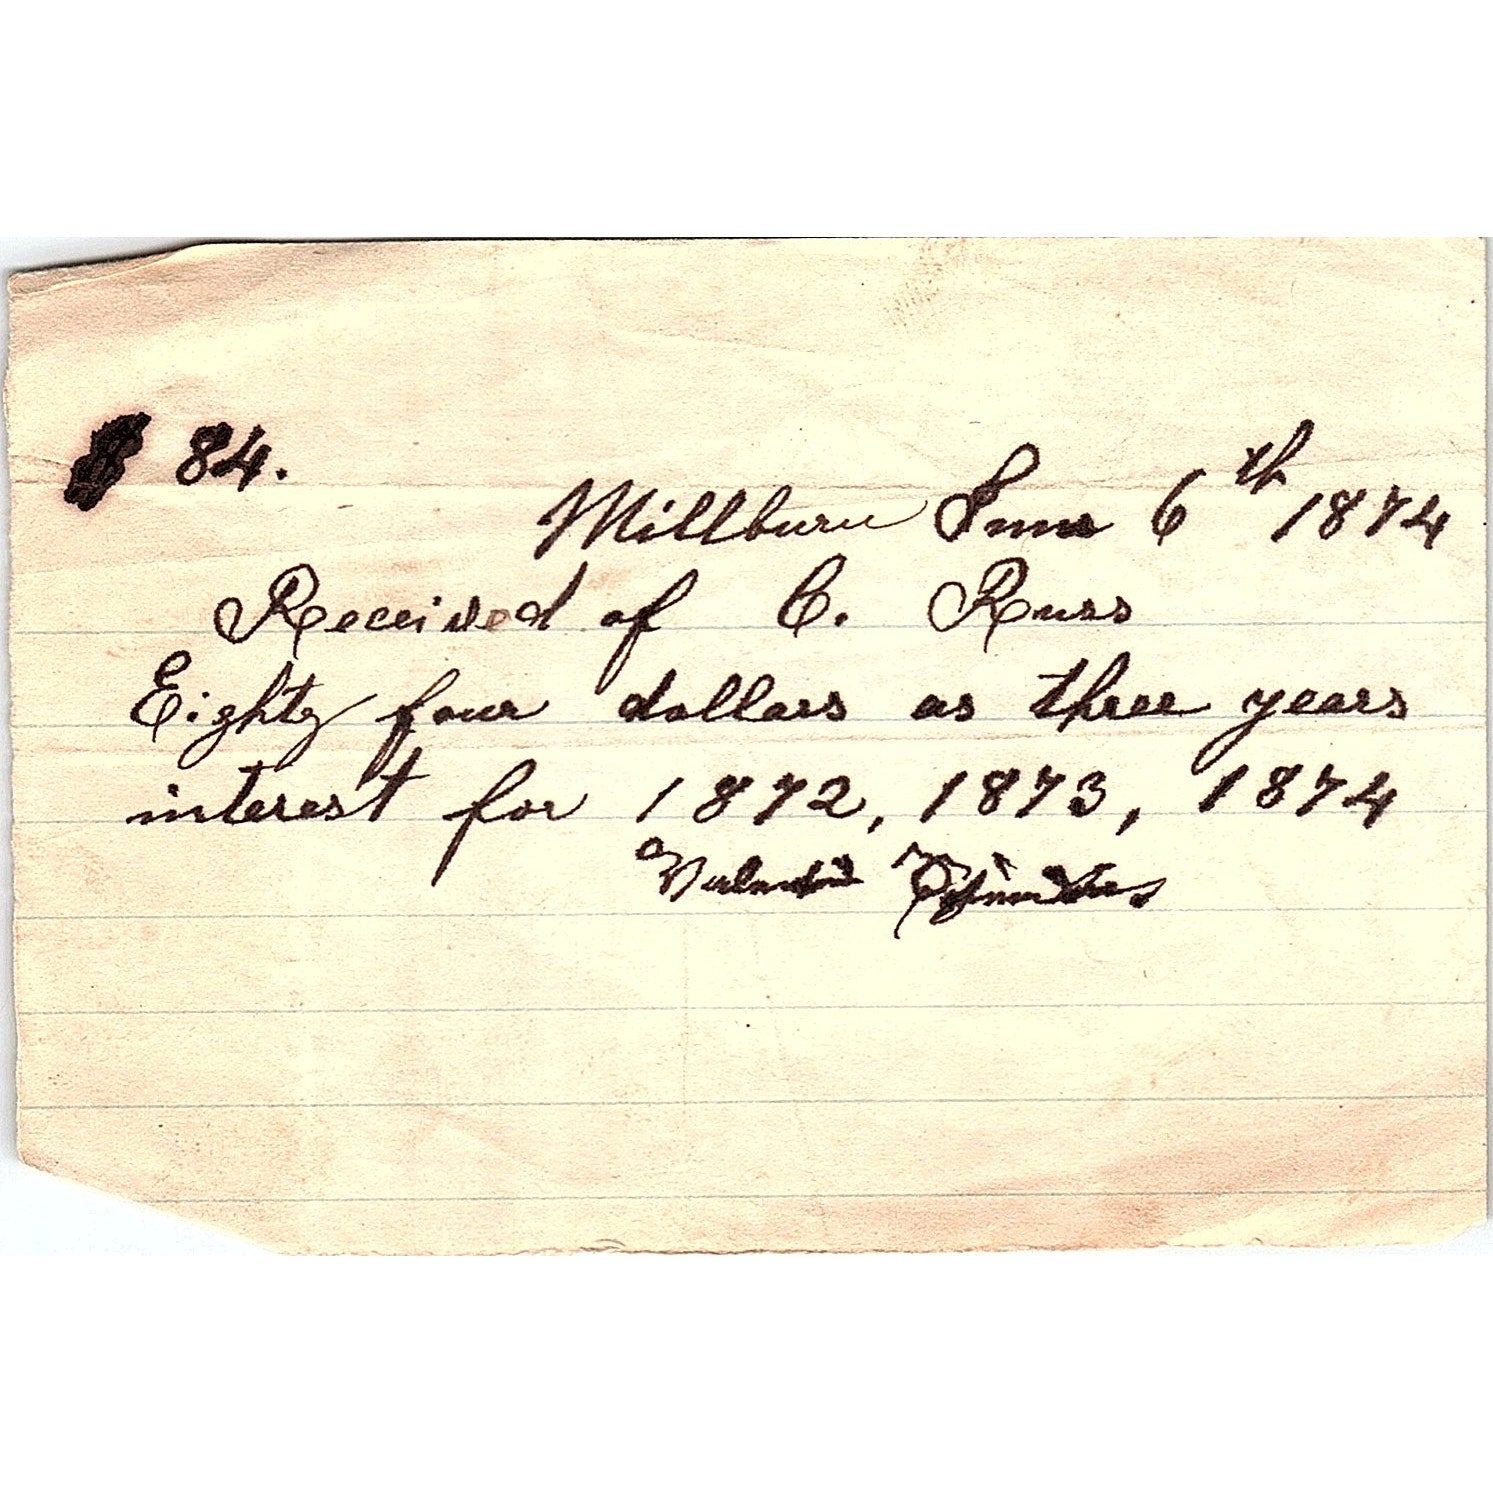 $ 84.
Millburn June 6th 1874
Received of C. Russ
Eighty four dollars as three years
interest for 1872, 1873, 1874
Valentin